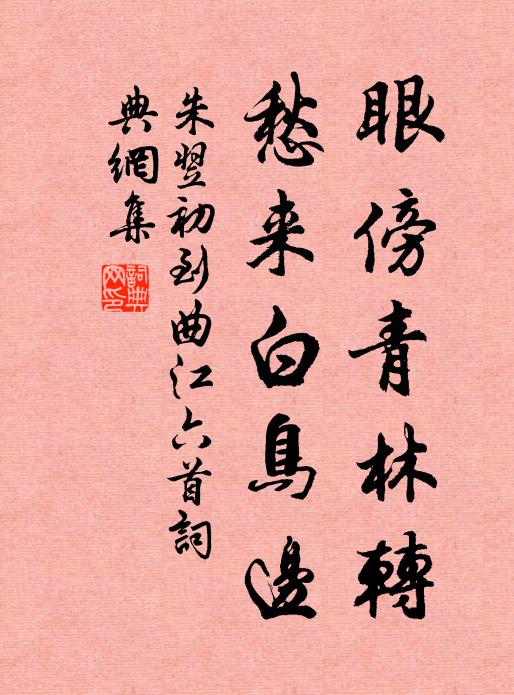 眼傍青林轉
愁来白鳥邊
朱翌初到曲江六首詞
典網集
詞典網印